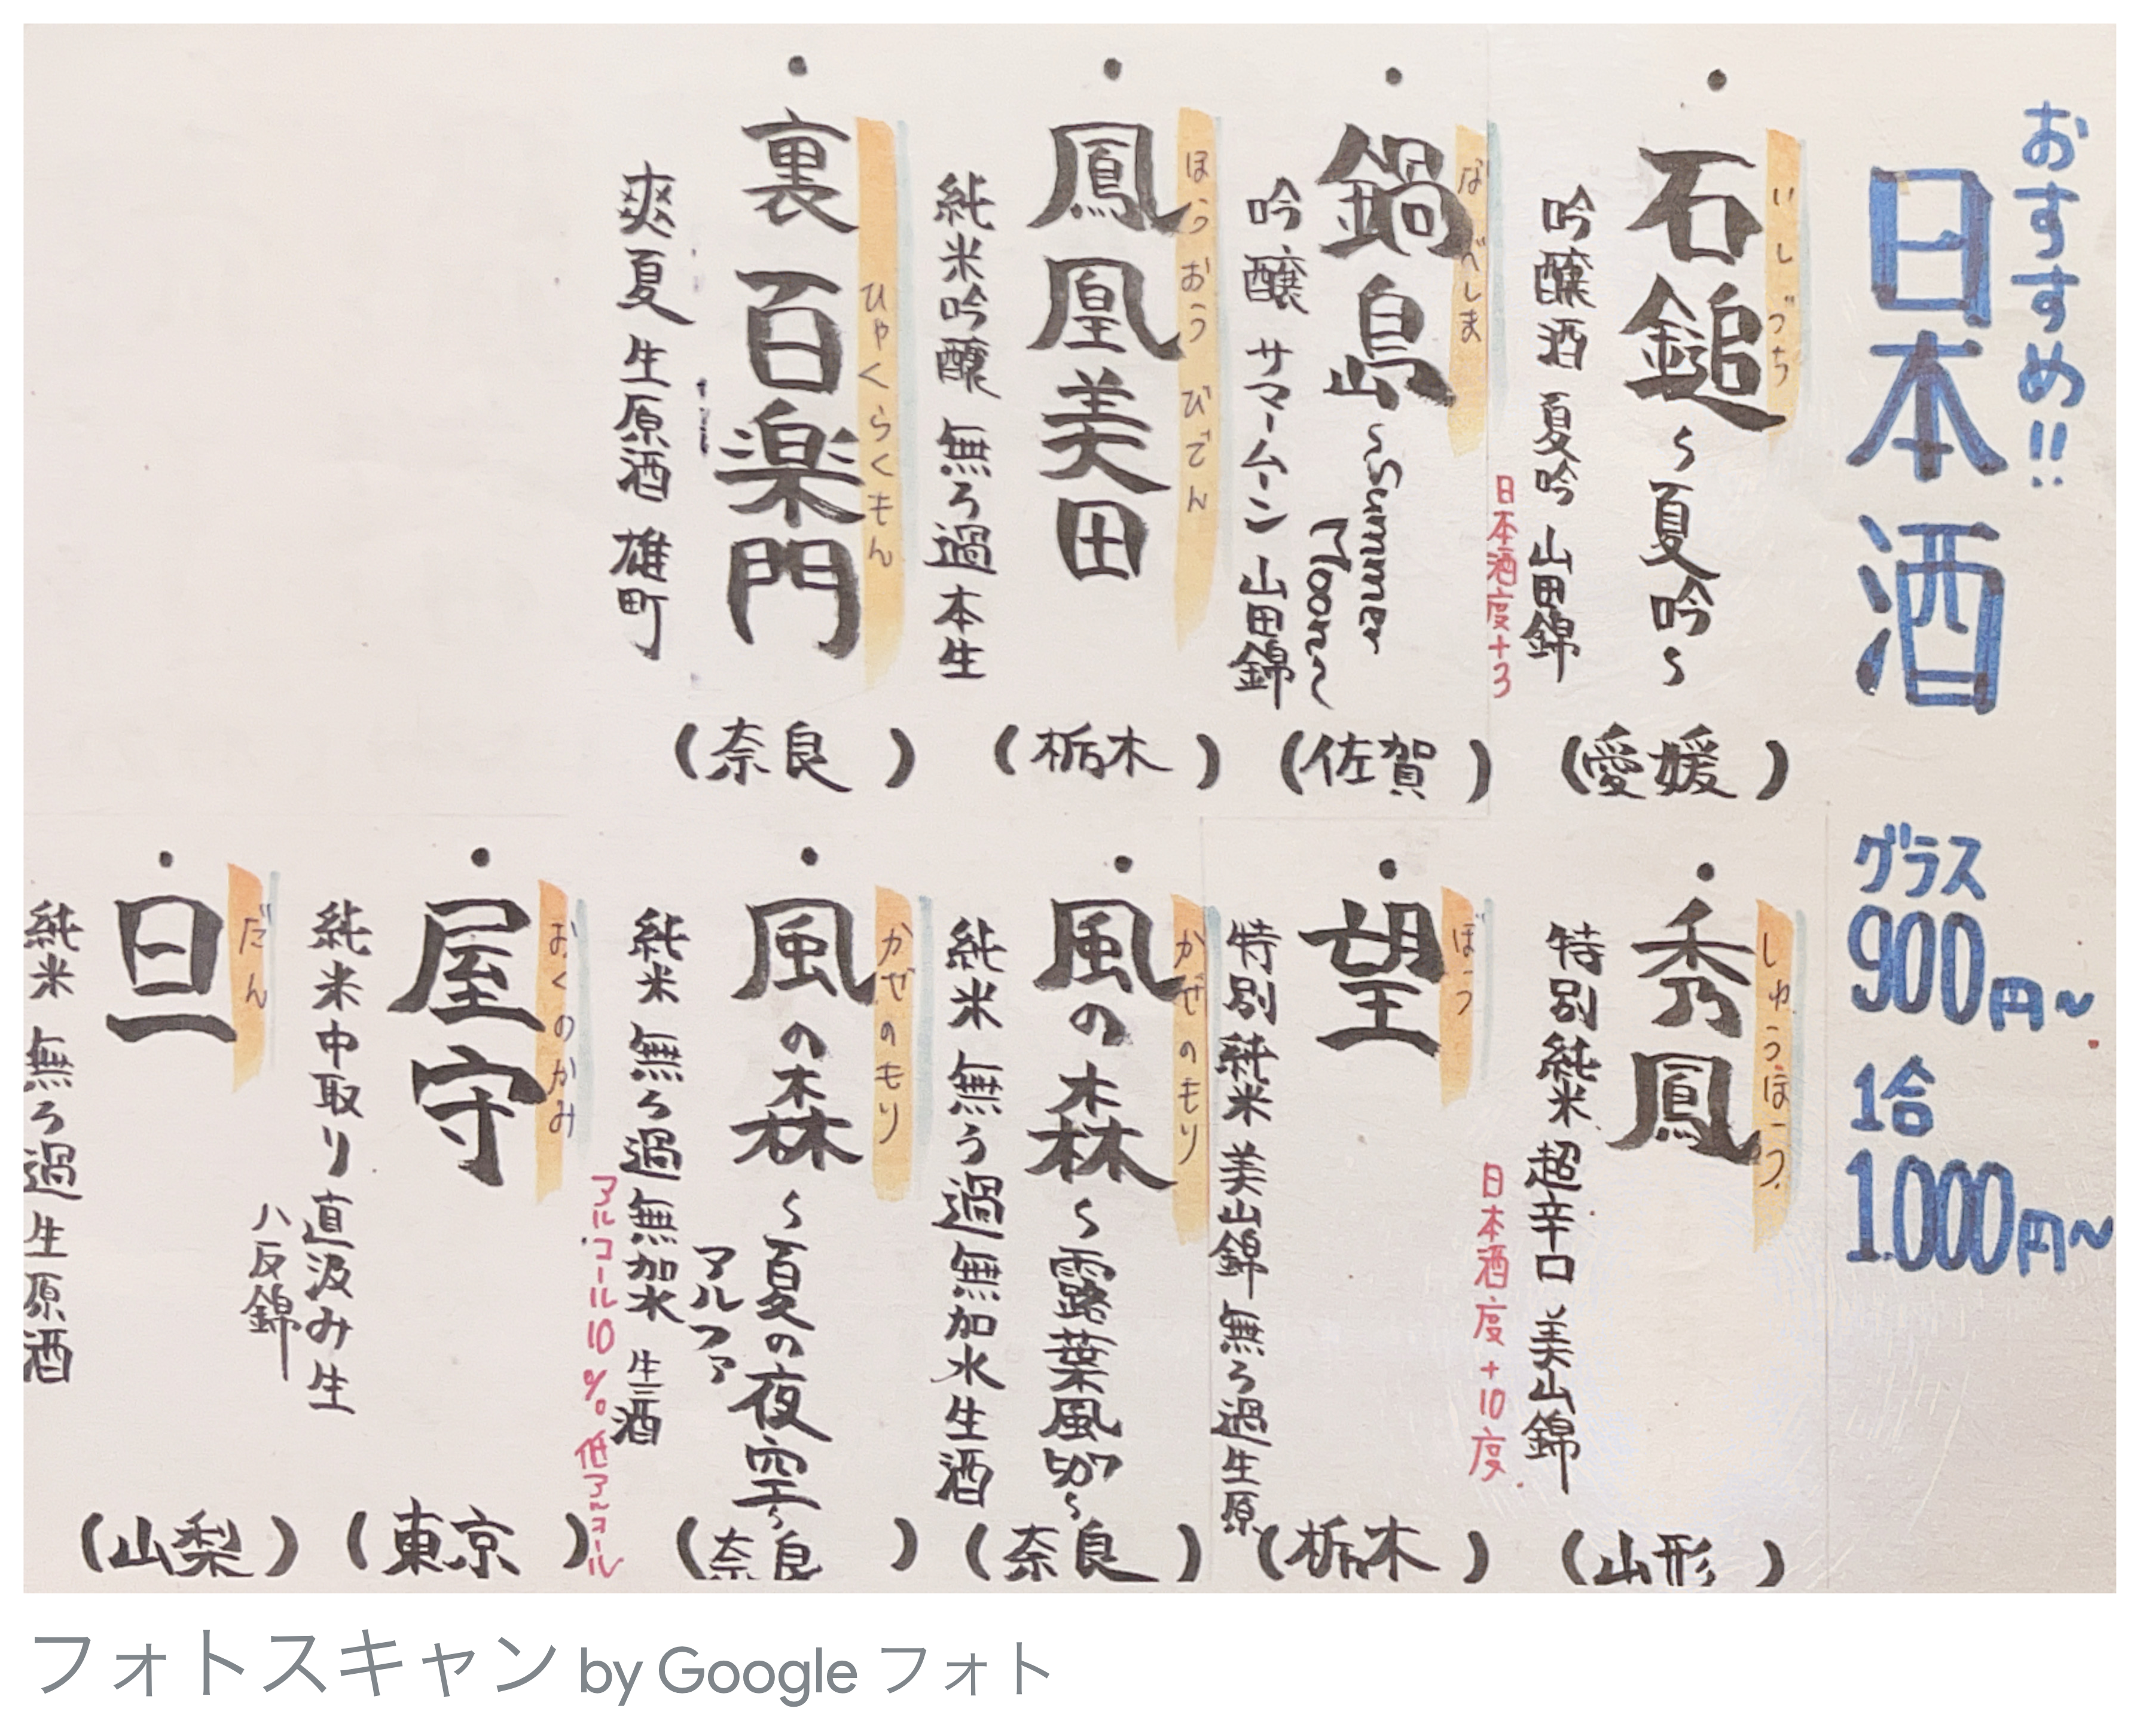 おすすめ!!
日本酒
グラス
900円~
1合
1.000円~
・石鎚~夏吟~
いしづち
吟醸酒 夏吟 山田錦
日本酒度+3
(愛媛)
・鍋島~Summer
Moon~
なべしま
吟醸 サマームーン 山田錦
(佐賀)
・鳳凰美田
ほうおうびでん
純米吟醸 無ろ過本生
(栃木)
・裏百楽門
ひゃくらくもん
爽夏 生原酒 雄町
(奈良)
・秀鳳
しゅうほう
特別純米 超辛口 美山錦
日本酒度+10度
(山形)
・望
ぼう
特別純米 美山錦 無ろ過生原
(栃木)
・風の森~露葉風507~
かぜのもり
純米 無ろ過無加水生酒
(奈良)
・風の森~夏の夜空~
アルファ
かぜのもり
純米 無ろ過無加水 生酒
アルコール10%。低アルコール
(奈良)
・屋守
おくのかみ
純米中取り直汲み生
八反錦
(東京)
・旦
だん
純米 無ろ過生原酒
(山梨)
フォトスキャン by Google フォト